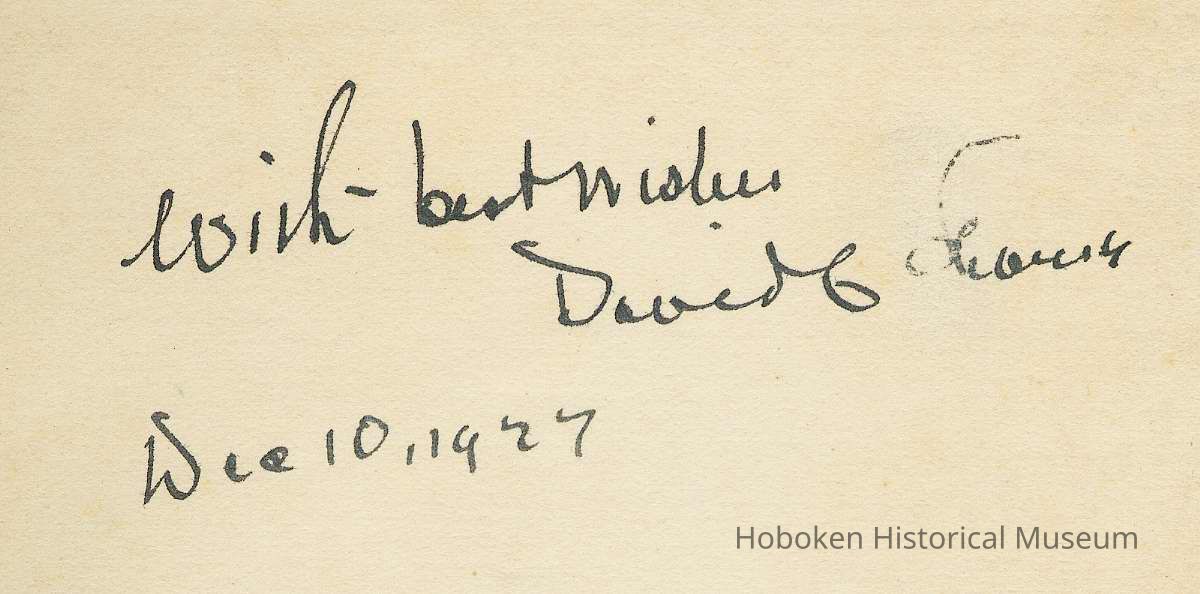 With best wishes
David
Dec 10, 1927
Hoboken Historical Museum